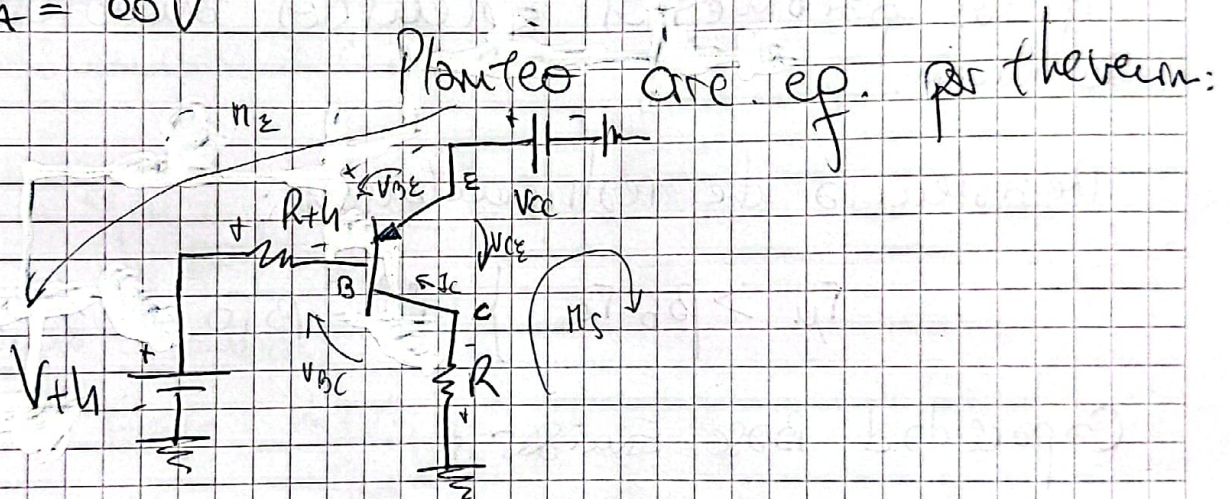 A = 60 V
Planteo are. eq. por thevenin:
ME
+ VBE
E
+ -
VCC
Rth
+ -
VCE
B
IC
C
-
VBC
MS
Vth
+
-
-
R
+